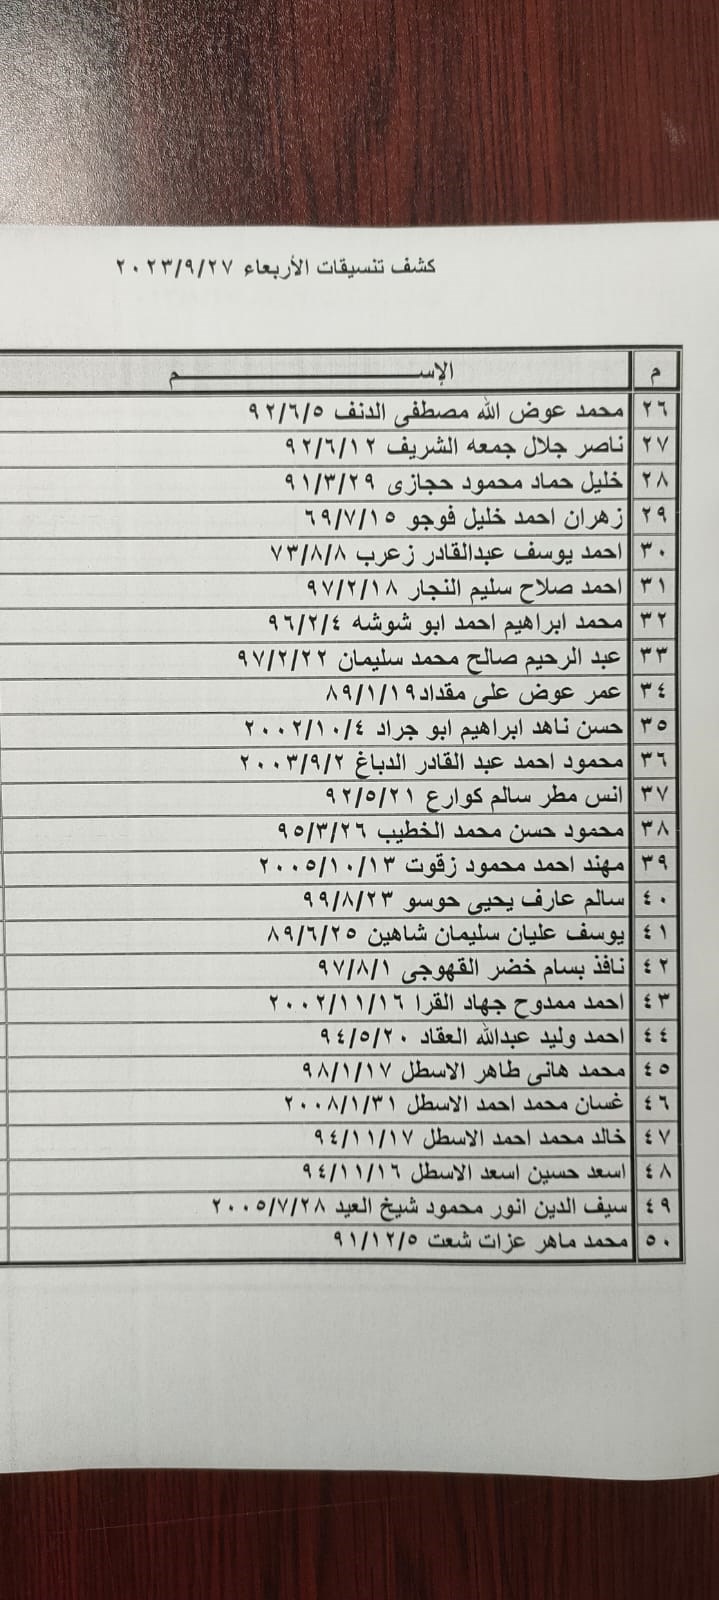 كشف تنسيقات الأربعاء ٢٠٢٣/٩/٢٧
م الإســـــــــــــــــــــم
٢٦ محمد عوض الله مصطفى الدنف ٩٢/٦/٥
٢٧ ناصر جلال جمعه الشريف ٩٢/٦/١٢
٢٨ خليل حماد محمود حجازى ٩١/٣/٢٩
٢٩ زهران احمد خليل فوجو ٦٩/٧/١٥
٣٠ احمد يوسف عبدالقادر زعرب ٧٣/٨/٨
٣١ احمد صلاح سليم النجار ٩٧/٢/١٨
٣٢ محمد ابراهيم احمد ابو شوشه ٩٦/٢/٤
٣٣ عبد الرحيم صالح محمد سليمان ٩٧/٢/٢٢
٣٤ عمر عوض على مقداد٨٩/١/١٩
٣٥ حسن ناهد ابراهيم ابو جراد ٢٠٠٢/١٠/٤
٣٦ محمود احمد عبد القادر الدباغ ٢٠٠٣/٩/٢
٣٧ انس مطر سالم كوارع ٩٢/٥/٢١
٣٨ محمود حسن محمد الخطيب ٩٥/٣/٢٦
٣٩ مهند احمد محمود زقوت ٢٠٠٥/١٠/١٣
٤٠ سالم عارف يحيى حوسو ٩٩/٨/٢٣
٤١ يوسف عليان سليمان شاهين ٨٩/٦/٢٥
٤٢ نافذ بسام خضر القهوجى ٩٧/٨/١
٤٣ احمد ممدوح جهاد القرا ٢٠٠٢/١١/١٦
٤٤ احمد وليد عبدالله العقاد ٩٤/٥/٢٠
٤٥ محمد هانى طاهر الاسطل ٩٨/١/١٧
٤٦ غسان محمد احمد الاسطل ٢٠٠٨/١/٣١
٤٧ خالد محمد احمد الاسطل ٩٤/١١/١٧
٤٨ اسعد حسين اسعد الاسطل ٩٤/١١/١٦
٤٩ سيف الدين انور محمود شيخ العيد ٢٠٠٥/٧/٢٨
٥٠ محمد ماهر عزات شعت ٩١/١٢/٥